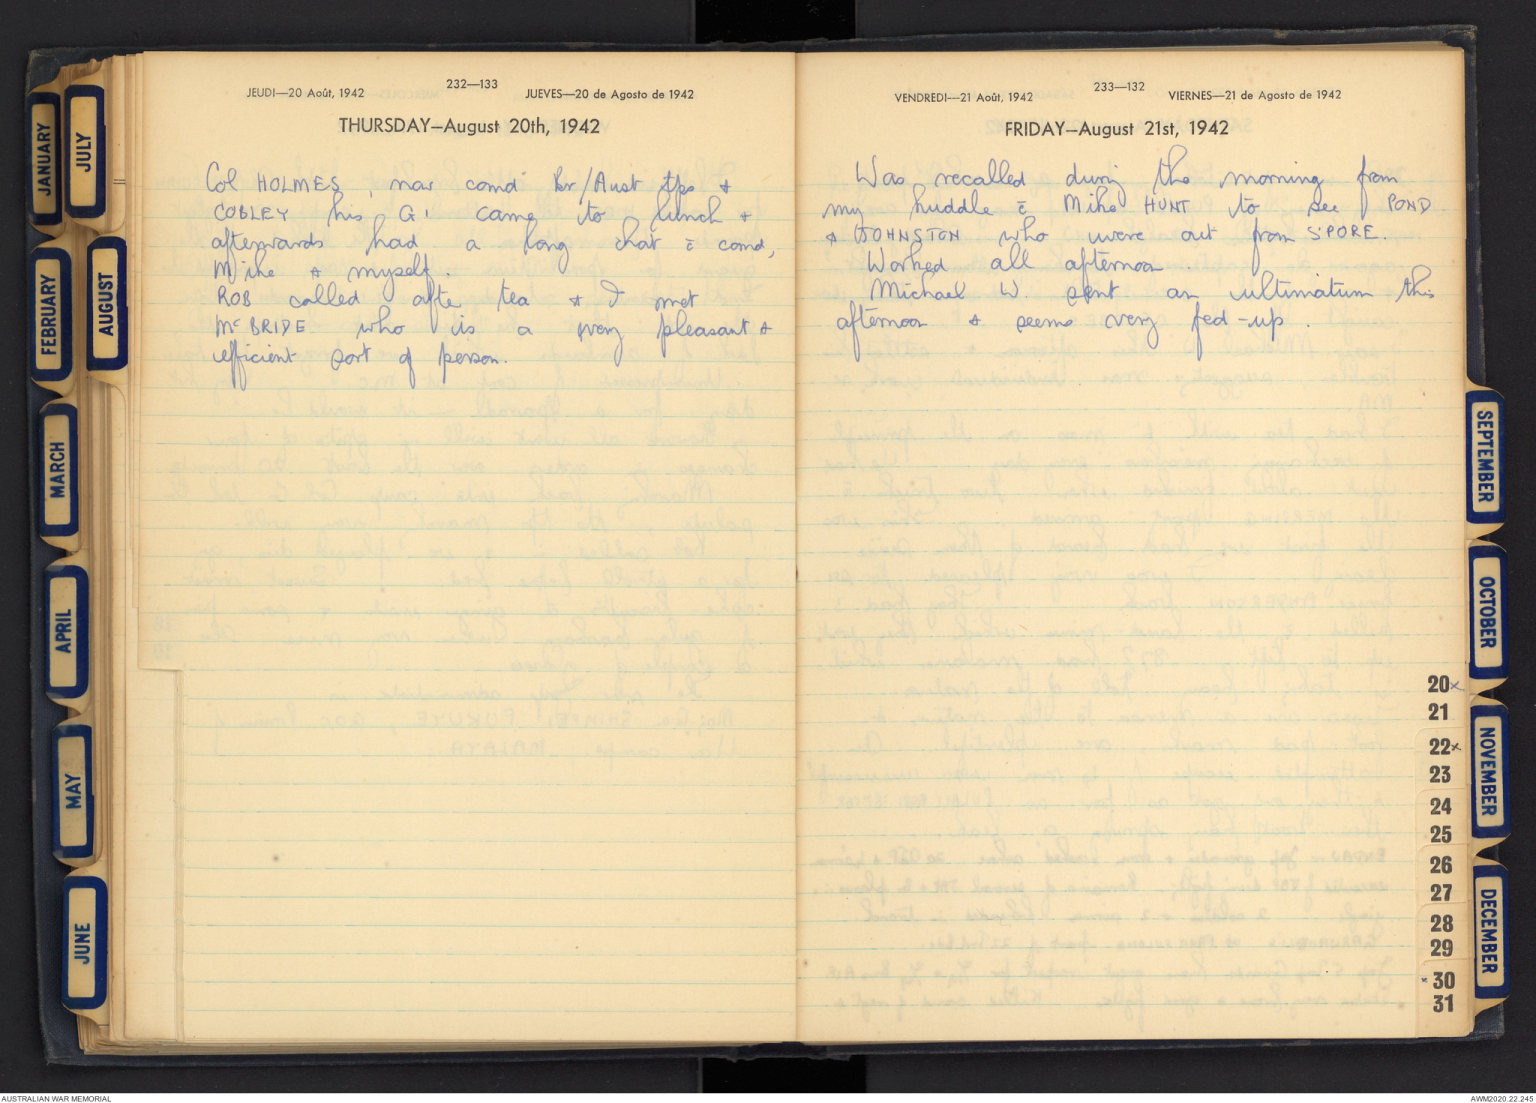 JANUARY
FEBRUARY
MARCH
APRIL
MAY
JUNE
JULY
AUGUST
232—133
JEUDI—20 Août, 1942
JUEVES—20 de Agosto de 1942
THURSDAY—August 20th, 1942
Col HOLMES, now comd Br/Aust tps &
COBLEY his 'G' came to lunch &
afterwards had a long chat c̄ comd,
Mike & myself.
ROB called afte tea & I met
McBRIDE who is a very pleasant &
efficient sort of person.
233—132
VENDREDI—21 Août, 1942
VIERNES—21 de Agosto de 1942
FRIDAY—August 21st, 1942
Was recalled during the morning from
my huddle c̄ Mike HUNT to see POND
& JOHNSTON who were out from S'PORE.
Worked all afternoon
Michael W sent an ultimatum this
afternoon & seems very fed-up.
SEPTEMBER
OCTOBER
NOVEMBER
DECEMBER
20x
21
22x
23
24
25
26
27
28
29
30
31
AUSTRALIAN WAR MEMORIAL
AWM2020.22.245